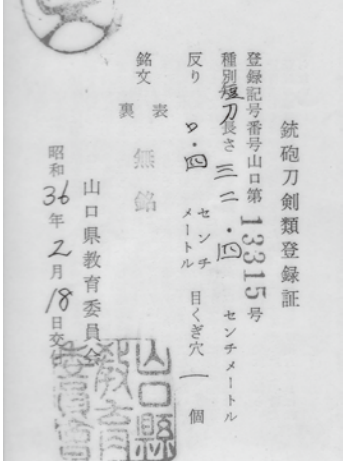 銃砲刀剣類登録証
登録記号番号山口第13315号
種別短刀長さ三二・四センチメートル
反り〇・四センチメートル 目くぎ穴一個
銘文 表 無銘
裏
山口県教育委員会
昭和36年2月18日交付
山口縣
教育
委員會